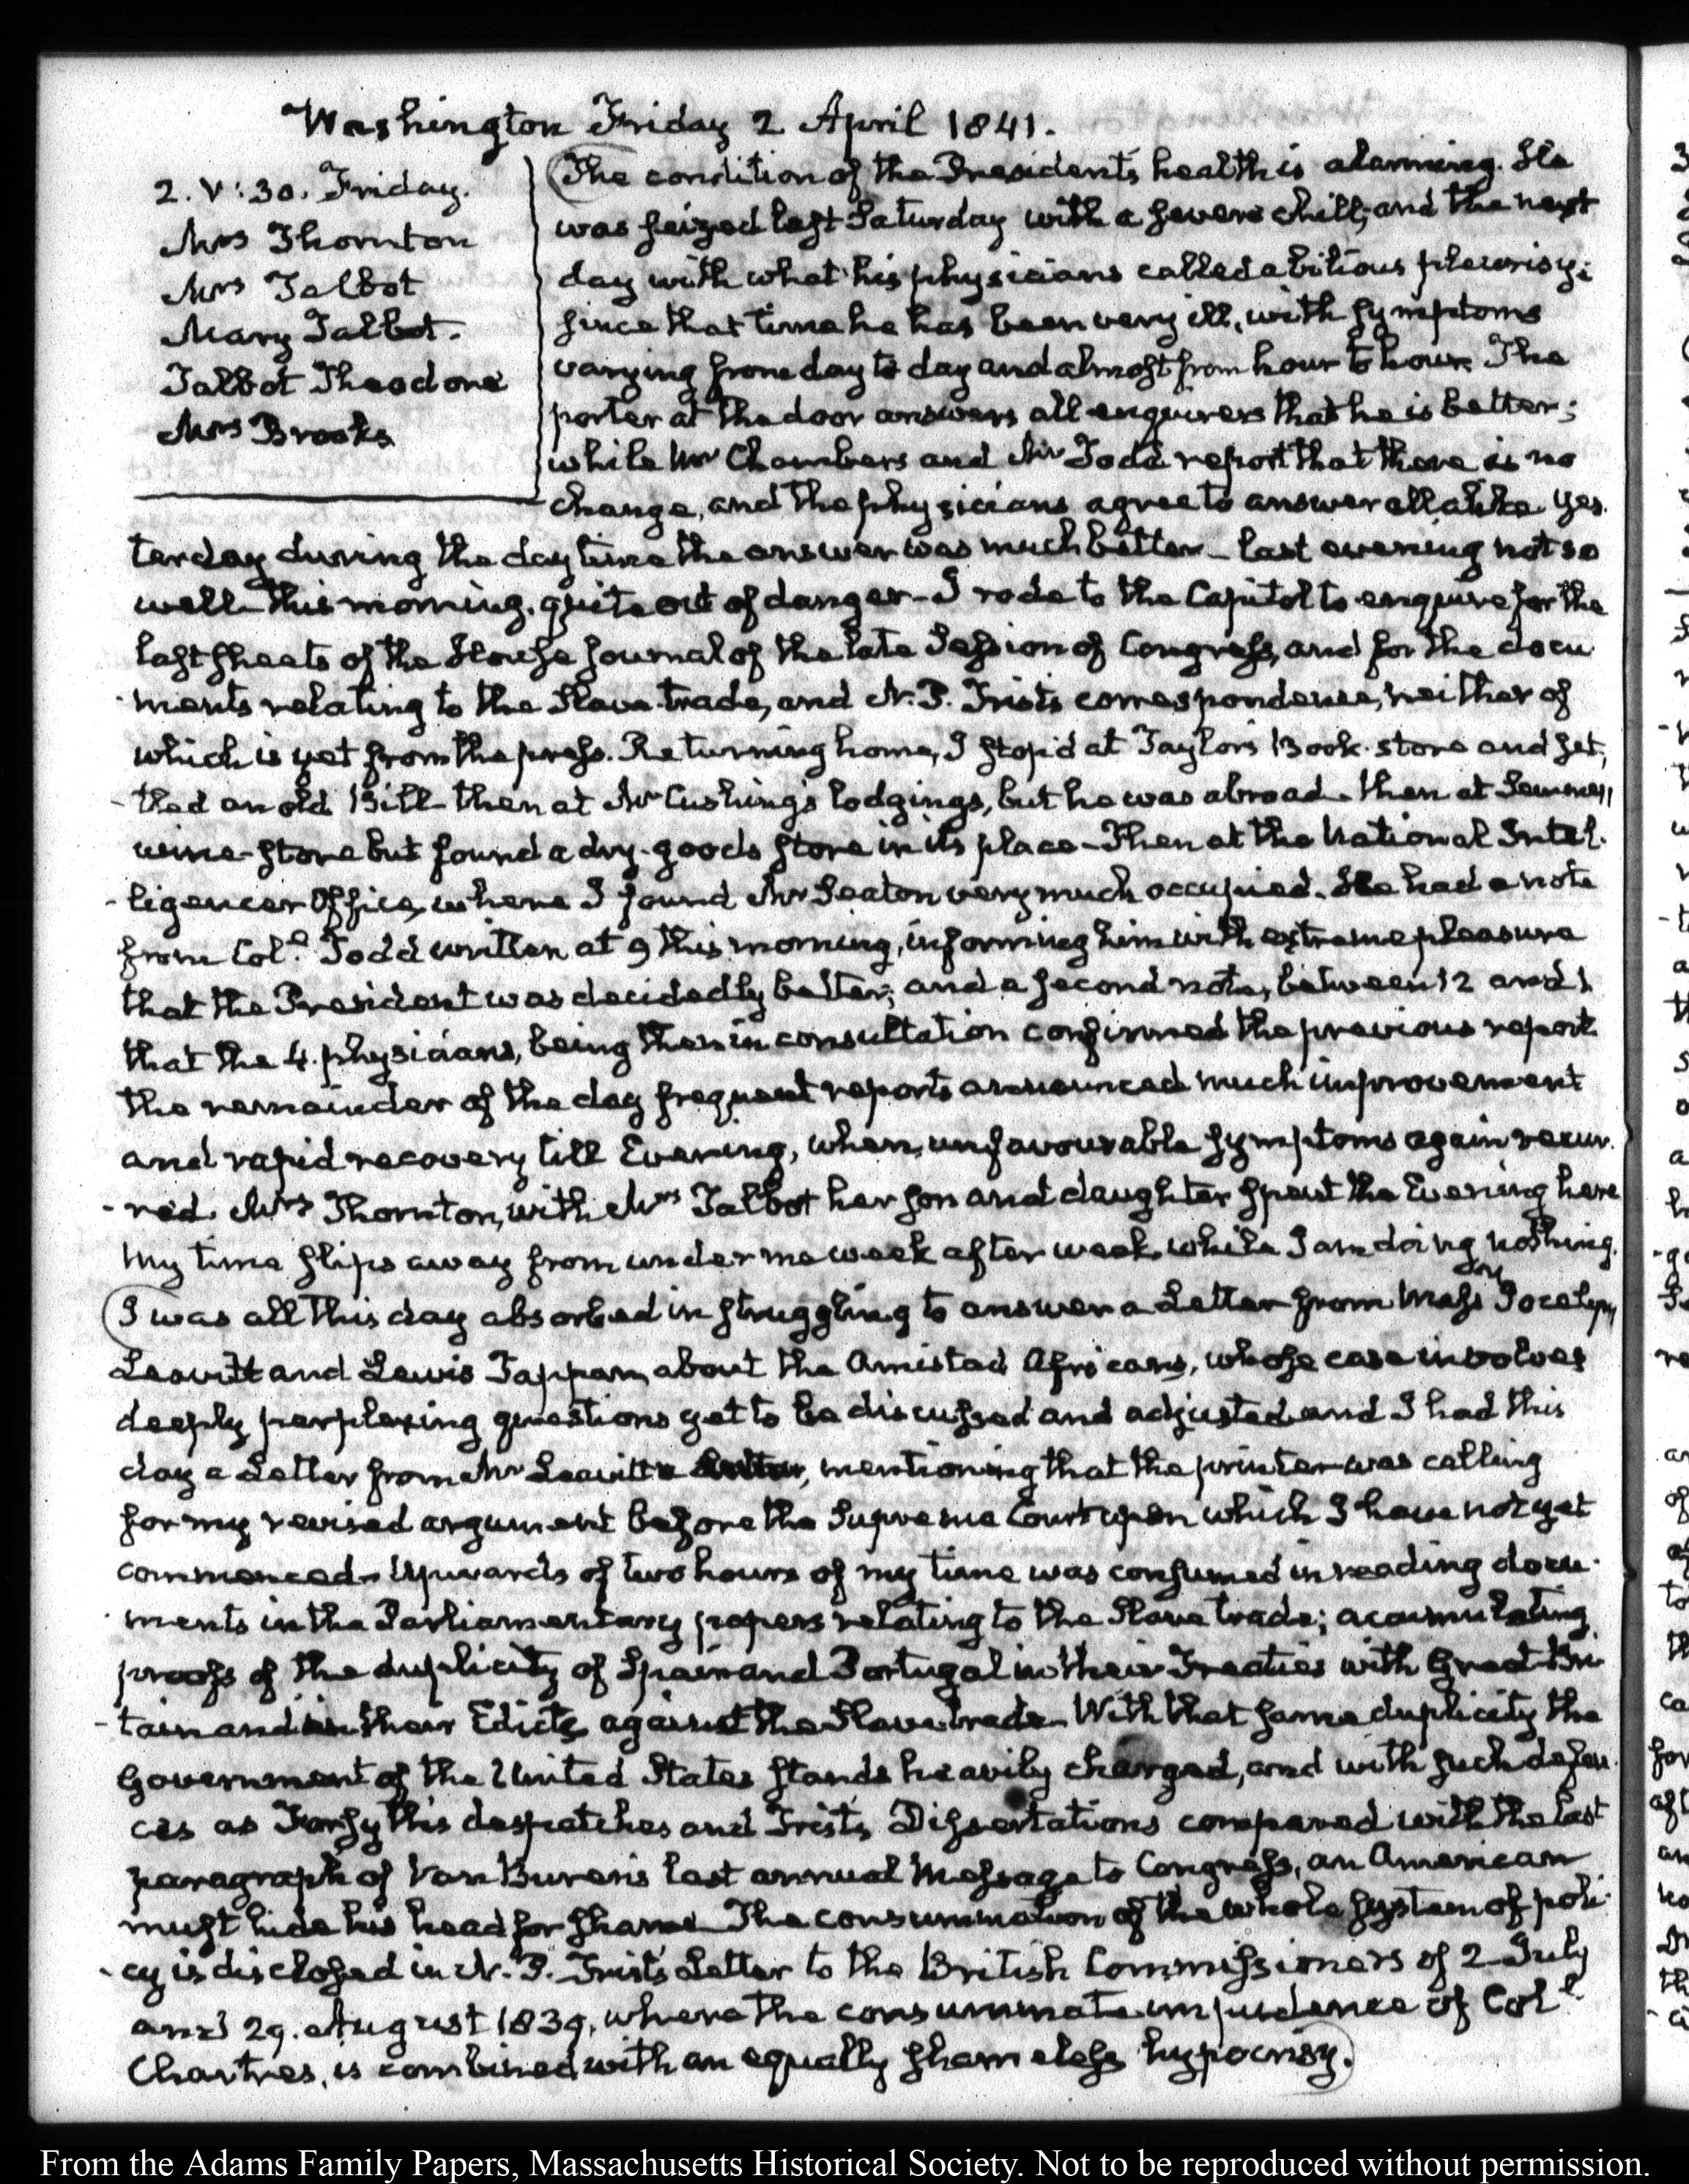 Washington Friday 2 April 1841.
2. V:30. Friday.
Mrs Thornton
Mrs Talbot
Mary Talbot.
Talbot Theodore
Mrs Brooks
The condition of the President's health is alarming. He
was seized last Saturday with a severe chill, and the next
day with what his physicians called a bilious pleurisy;
since that time he has been very ill, with symptoms
varying from day to day and almost from hour to hour. The
porter at the door answers all enquirers that he is better;
while Mr Chambers and Mr Todd report that there is no
change, and the physicians agree to answer all alike. Yes
terday during the day time the answer was much better - last evening not so
well - this morning, quite out of danger - I rode to the Capitol to enquire for the
last sheets of the House Journal of the late Session of Congress, and for the docu
ments relating to the Slave-trade, and N. P. Trist's correspondence, neither of
which is yet from the press. Returning home, I stop'd at Taylor's Book-store and set,
-tled an old Bill - then at Mr Cushing's lodgings, but he was abroad - then at
wine-store but found a dry-goods store in its place - Then at the National Intel-
-ligencer Office, where I found Mr Seaton very much occupied. He had a note
from Coll. Todd written at 9 this morning, informing him with extreme pleasure
that the President was decidedly better; and a second note, between 12 and 1
that the 4 physicians, being then in consultation confirmed the previous report
the remainder of the day frequent reports announced much improvement
and rapid recovery till Evening, when, unfavourable symptoms again recur-
-red. Mrs Thornton, with Mrs Talbot her son and daughter spent the Evening here
My time slips away from under me week after week, while I am doing nothing.
I was all this day absorbed in struggling to answer a Letter from Messrs Jocelyn
Leavitt and Lewis Tappan, about the Amistad Africans, whose case involves
deeply perplexing questions yet to be discussed and adjusted and I had this
day a Letter from Mr Leavitt, mentioning that the printer was calling
for my revised argument before the Supreme Court upon which I have not yet
commenced - Upwards of two hours of my time was consumed in reading docu-
ments in the Parliamentary papers relating to the Slave trade; accumulating
proofs of the duplicity of Spain and Portugal in their Treaties with Great-Bri
-tain and in their Edicts against the Slave trade - With that same duplicity the
Government of the United States stands heavily charged, and with such defen-
ces as Forsyth's despatches and Trist's Dissertations compared with the last
paragraph of Van Buren's last annual Message to Congress, an American
must hide his head for shame. The consummation of the whole system of poli-
-cy is disclosed in N. P. Trist's Letter to the British Commissioners of 2 July
and 29. August 1839, where the consummate impudence of Coll.
Chartres, is combined with an equally shameless hypocrisy.
From the Adams Family Papers, Massachusetts Historical Society. Not to be reproduced without permission.